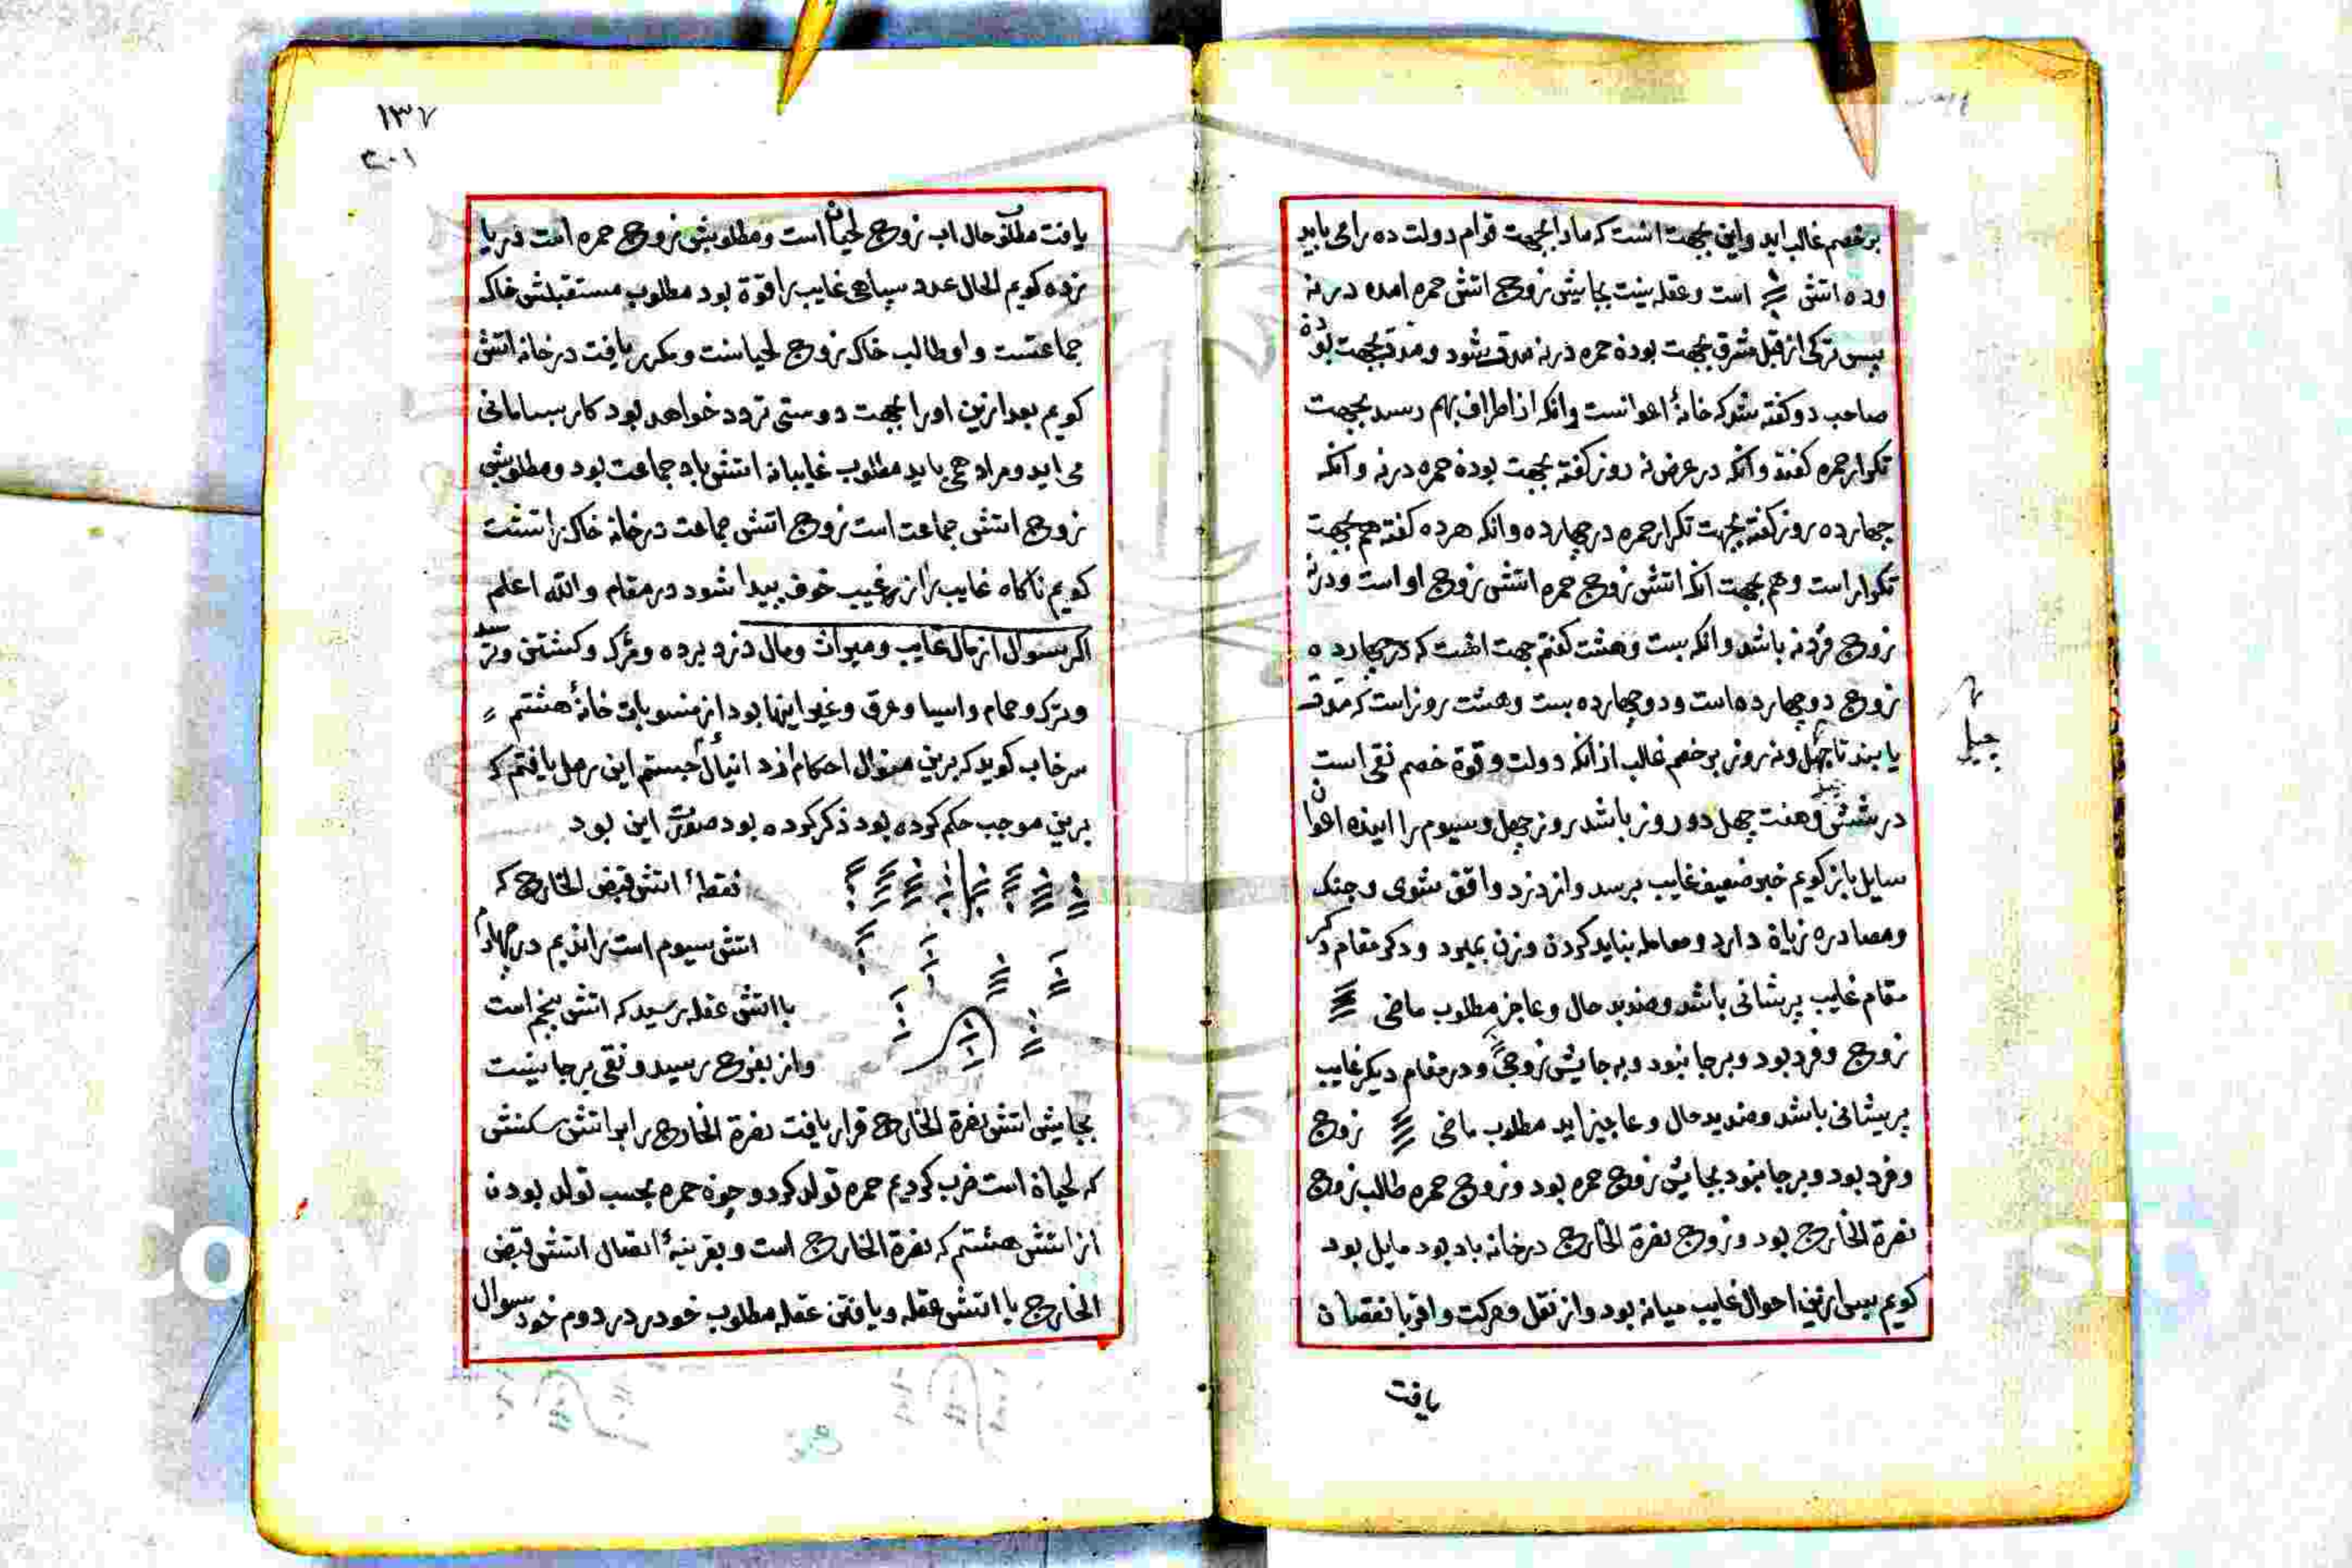 بر خصم غالب اید و این بجهت است که ما را بجهت قوام دولت ده را می باید
و ده اتش است و عقله نیت بجایش زوج اتش حمره امده در نه
پس ترکی از قبل مشرق بجهت بوده حمره در نه مدقق شود و مدقق بجهت بوده
صاحب دو کفته شد که خانهٔ اعوانست و انکه از اطراف بهم رسد بجهت
تکرار حمره کفته و انکه در عرض نه روز کفته بجهت بوده حمره در نه و انکه
چهارده روز کفته بجهت تکرار حمره در چهارده و انکه هرده کفته هم بجهت
تکرار است و هم بجهت انکه اتش زوج حمره اتش زوج او است و در نه
زوج فرد نه باشد و انکه بیست و هشت کفتم جهت انست که در چهارده
زوج دو چهارده است و دو چهارده بیست و هشت روز است که
یابند تا چهل و نه روز بر خصم غالب از انکه دولت و قوة خصم نقی است
در شش و هفت چهل دو روز باشد روز چهل و سیوم را اینده اعوان
سایل باز کویم خبر ضعیف غایب برسد و از دزد واقف شوی و جنک
و مصادره زیاة دارد و معامله نباید کردن و زن بمیرد و دکر مقام دکر
مقام غایب پریشانی باشد و صد بد حال و عاجز مطلوب ماضی
زوج و فرد بود و بر جا نبود و بر جایش زوجی و در مقام دیکر غایب
پریشانی باشد و صد بد حال و عاجز اید مطلوب ماضی زوج
و فرد بود و بر جا نبود بجایش زوج حمره بود و زوج حمره طالب زوج
نصرة الخارج بود و زوج نصرة الخارج در خانه باد بود مایل بود
کویم پس ازین احوال غایب میانه بود و از نقل و حرکت و اقربا نقصان
یافت
چهل
۱۳۷
۳۰۱
یافت مطلوب حال اب زوج لحیان است و مطلوبش زوج حمره است در یا
زده کویم الحال عدد سپاهی غایب را قوة بود مطلوب مستقبلش خاک
جماعتست و او طالب خاک زوج لحیانست و مکرر یافت در خانه اتش
کویم بعد ازین او را بجهت دوستی تردد خواهد بود کار بسامانی
می اید و مراد می یابد مطلوب غایبانه اتش باد جماعت بود و مطلوبش
زوج اتش جماعت است زوج اتش جماعت در خانه خاک راتشت
کویم ناکاه غایب را از غیب خوف پیدا شود در مقام والله اعلم
اکر سوال از مال غایب و میراث و مال دزد برده و مرک و کشتن و ترسد
و ترک و حمام و اسیا و غرق و غیر اینها بود از منسوبات خانهٔ هشتم
سرخاب کوید که برین منوال احکام از دانیال جستم این رمل یافتم که
برین موجب حکم کرده بود ذکر کرده بود صورت این بود
نقطهٔ اتش قبض الخارج که
اتش سیوم است راندیم در چهار
با اتش عقله رسید که اتش پنجم است
و از بفرح رسید و نقی بر جا نیست
بجایش اتش نصرة الخارج قرار یافت نصرة الخارج را بر اتش سکنش
که لحیان است ضرب کردیم حمره تولد کرد و چون حمره بحسب تولد بودن
از اتش هشتم که نصرة الخارج است و بقرینهٔ اتصال اتش قبض
الخارج با اتش عقله و یافتن عقله مطلوب خود در دوم خود سوال